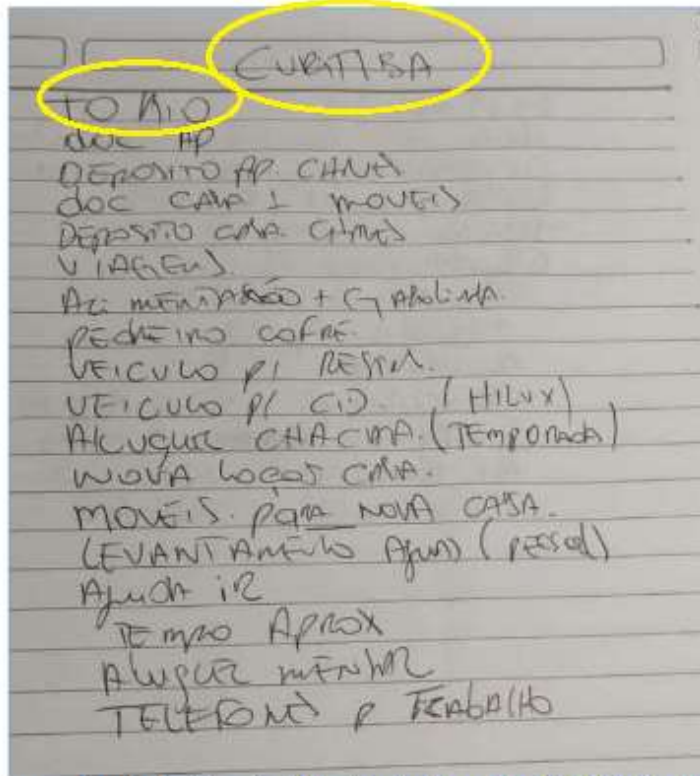 CURITIBA
TOKIO
doc AP
DEPOSITO AP. CHAVES
doc CASA 1 MOVEIS
DEPOSITO CASA. CHAVES
VIAGENS
ALIMENTAÇÃO + GASOLINA.
PEDREIRO COFRE.
VEICULO P/
VEICULO P/ CID. (HILUX)
ALUGUEL CHACARA. (TEMPORADA)
NOVA CASA.
MOVEIS. PARA NOVA CASA.
LEVANTAMENTO (PESSOAL)
AJUDA
TEMPO APROX
ALUGUEL MENSAL
TELEFONES P TRABALHO